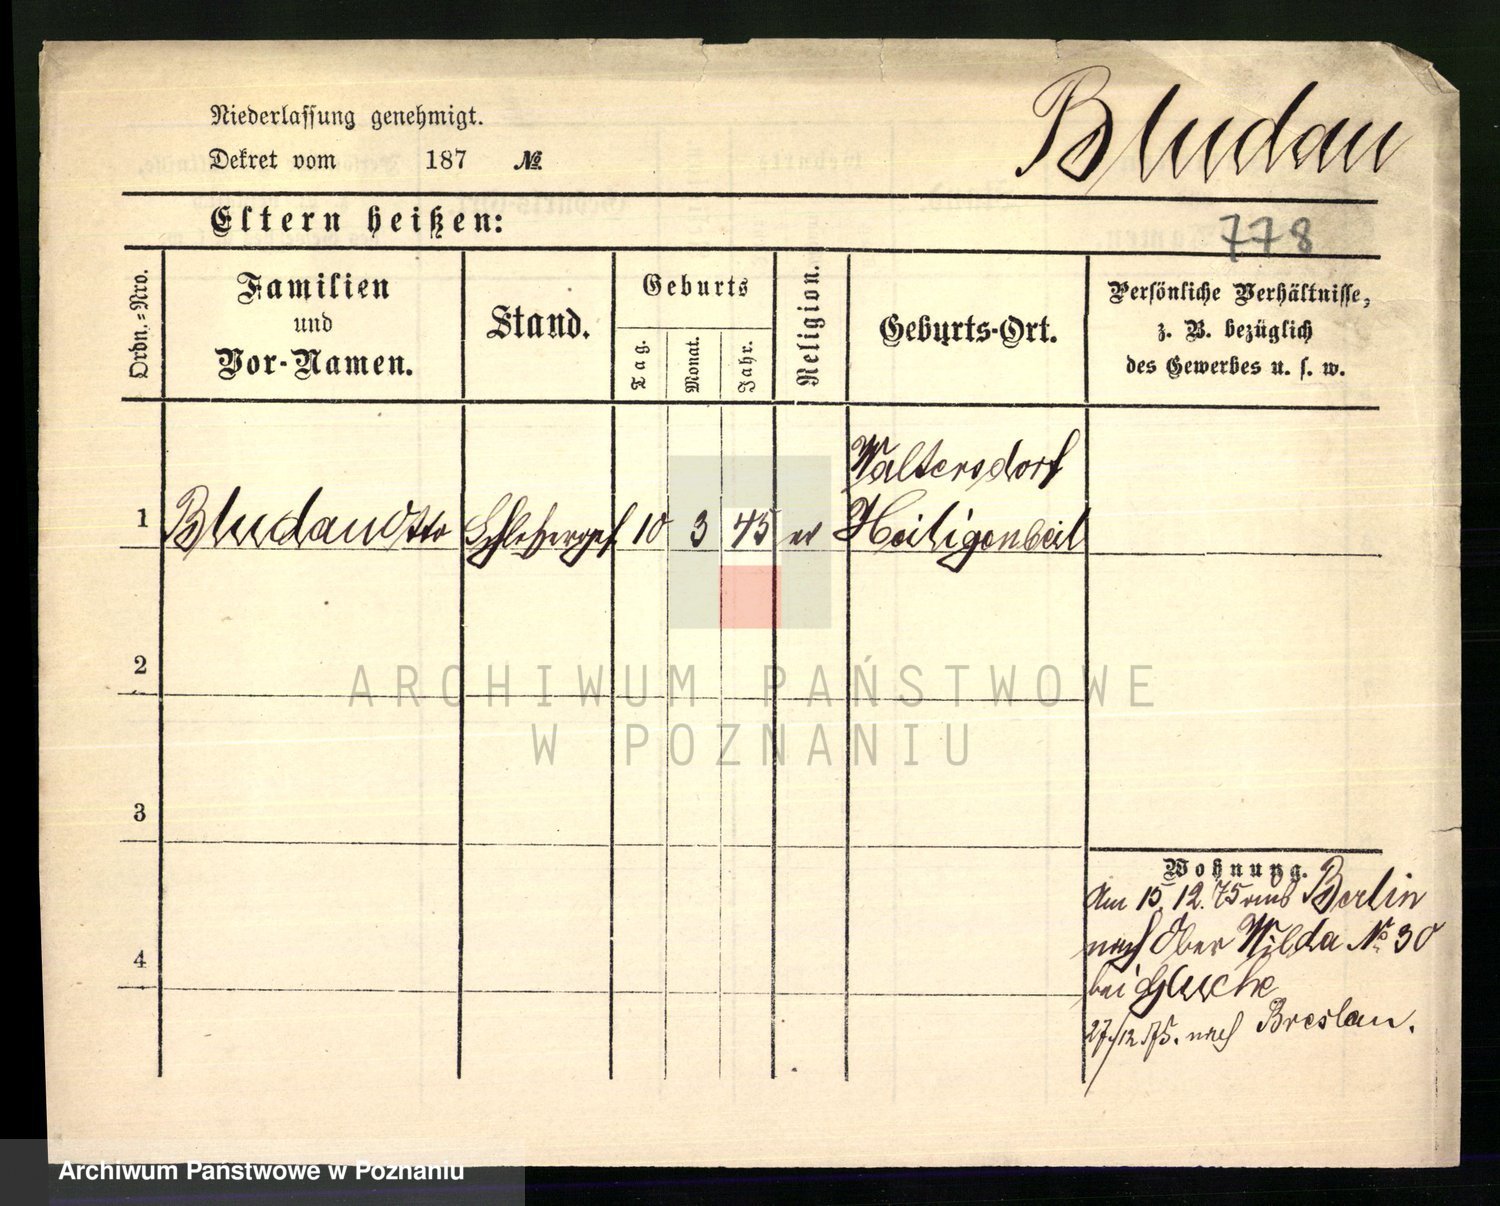 Niederlassung genehmigt.
Dekret vom 187 №
Bludau
Eltern heißen:
778
Ordn.=Nro.
Familien
und
Vor-Namen.
Stand.
Geburts
Tag.
Monat.
Jahr.
Religion.
Geburts-Ort.
Persönliche Verhältnisse,
z. B. bezüglich
des Gewerbes u. s. w.
1 Bludau Otto 10 3 45 ev
Waltersdorf
Heiligenbeil
2
3
4
Wohnung.
Am 15. 12. 75 aus Berlin
nach Ober Wilda № 30
bei Gluche
27/12 75. nach Breslau.
ARCHIWUM PAŃSTWOWE
W POZNANIU
Archiwum Państwowe w Poznaniu